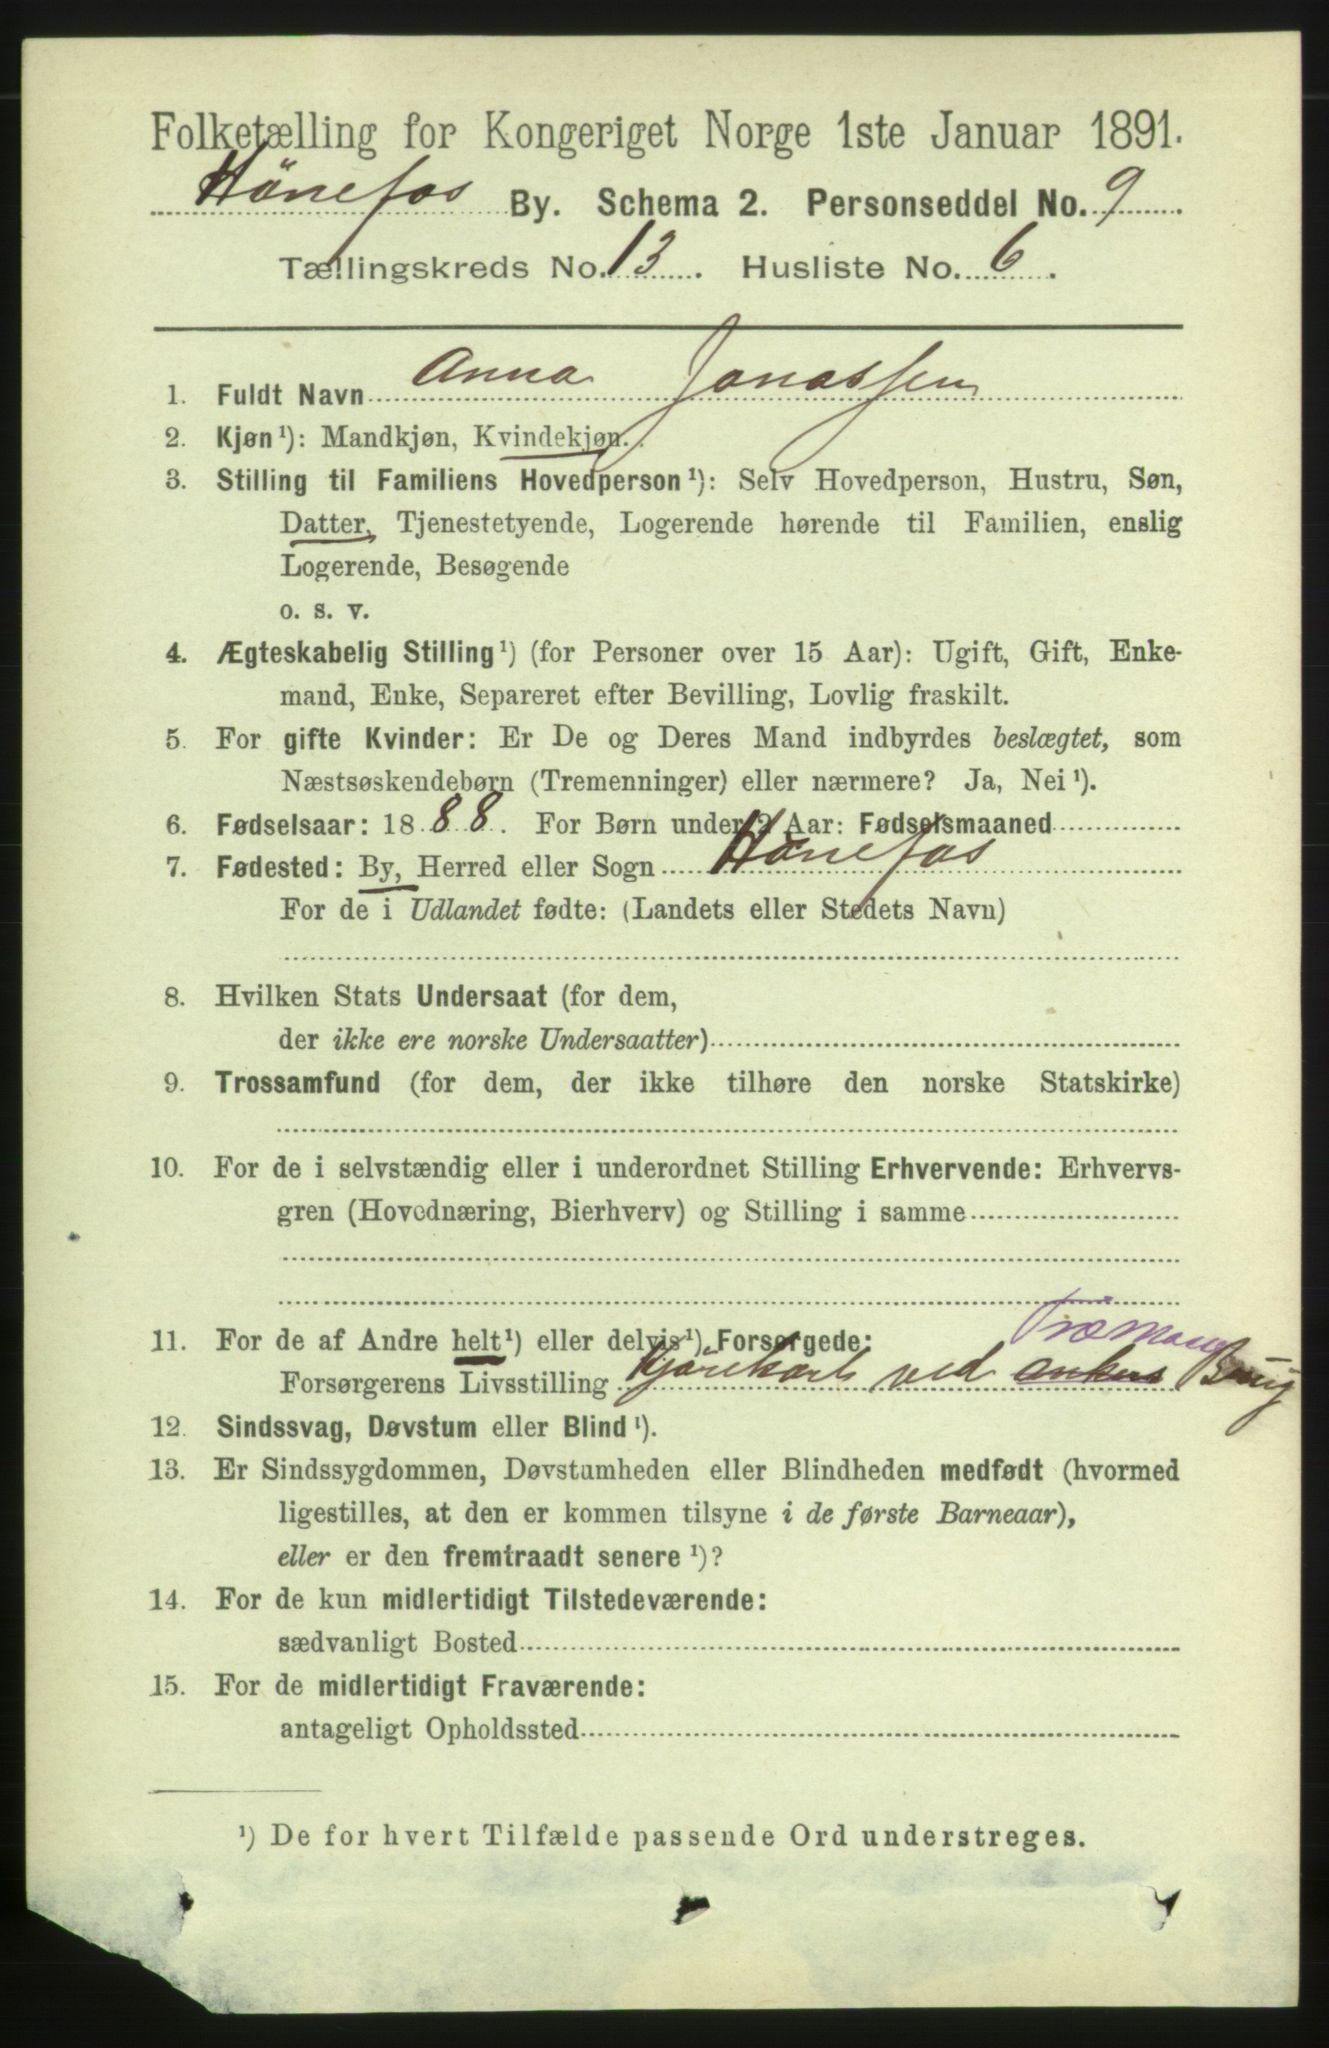 Folketælling for Kongeriget Norge 1ste Januar 1891.
Hönefos By. Schema 2. Personseddel No. 9
Tællingskreds No. 13. Husliste No. 6.
1. Fuldt Navn Anna Jonassen
2. Kjøn¹): Mandkjøn, Kvindekjøn.
3. Stilling til Familiens Hovedperson¹): Selv Hovedperson, Hustru, Søn,
Datter, Tjenestetyende, Logerende hørende til Familien, enslig
Logerende, Besøgende
o. s. v.
4. Ægteskabelig Stilling¹) (for Personer over 15 Aar): Ugift, Gift, Enke-
mand, Enke, Separeret efter Bevilling, Lovlig fraskilt.
5. For gifte Kvinder: Er De og Deres Mand indbyrdes beslægtet, som
Næstsøskendebørn (Tremenninger) eller nærmere? Ja, Nei¹).
6. Fødselsaar: 1888. For Børn under 2 Aar: Fødselsmaaned
7. Fødested: By, Herred eller Sogn Hönefos
For de i Udlandet fødte: (Landets eller Stedets Navn)
8. Hvilken Stats Undersaat (for dem,
der ikke ere norske Undersaatter)
9. Trossamfund (for dem, der ikke tilhøre den norske Statskirke)
10. For de i selvstændig eller i underordnet Stilling Erhvervende: Erhvervs-
gren (Hovednæring, Bierhverv) og Stilling i samme
11. For de af Andre helt¹) eller delvis¹) Forsørgede:
Forsørgerens Livsstilling Kjörekarl ved Brug
12. Sindssvag, Døvstum eller Blind¹).
13. Er Sindssygdommen, Døvstumheden eller Blindheden medfødt (hvormed
ligestilles, at den er kommen tilsyne i de første Barneaar),
eller er den fremtraadt senere¹)?
14. For de kun midlertidigt Tilstedeværende:
sædvanligt Bosted
15. For de midlertidigt Fraværende:
antageligt Opholdssted
¹) De for hvert Tilfælde passende Ord understreges.